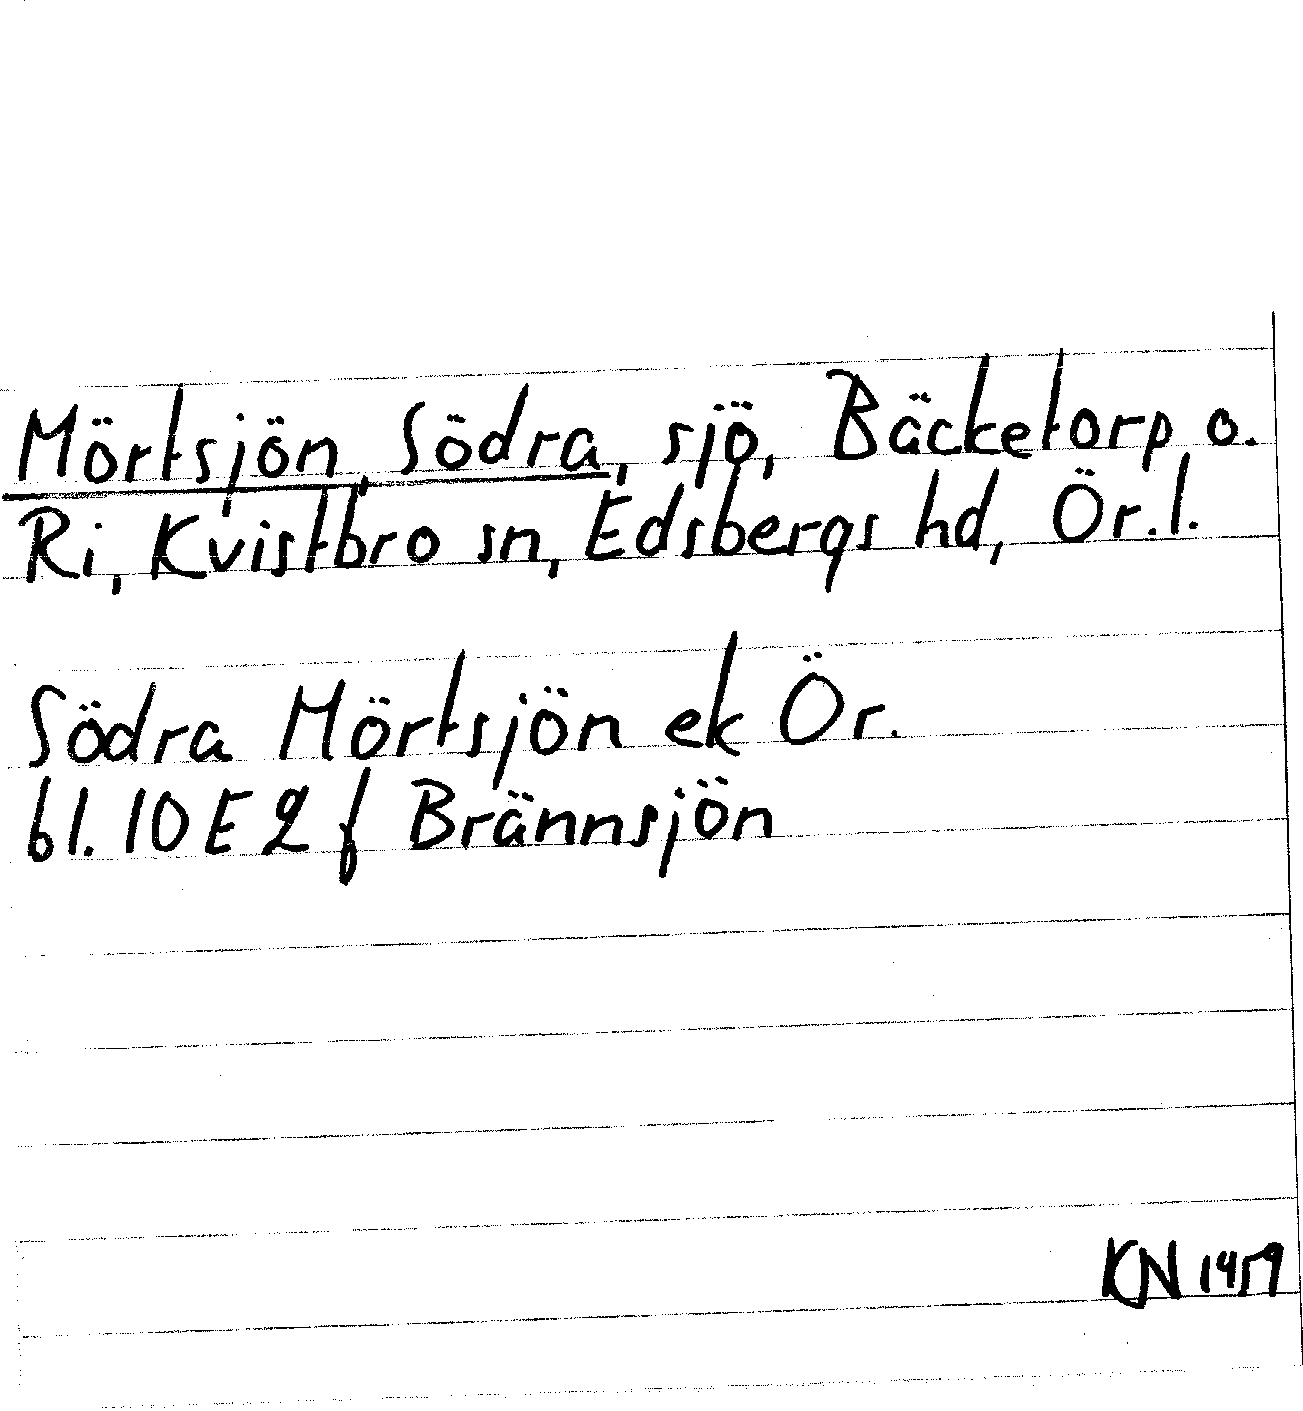 Mörtsjön, Södra, sjö, Bäcketorp o.
Ri, Kvistbro sn, Edsbergs hd, Ör.l.
Södra Mörtsjön ek Ör.
bl. 10 E 2 f Brännsjön
KN 1459